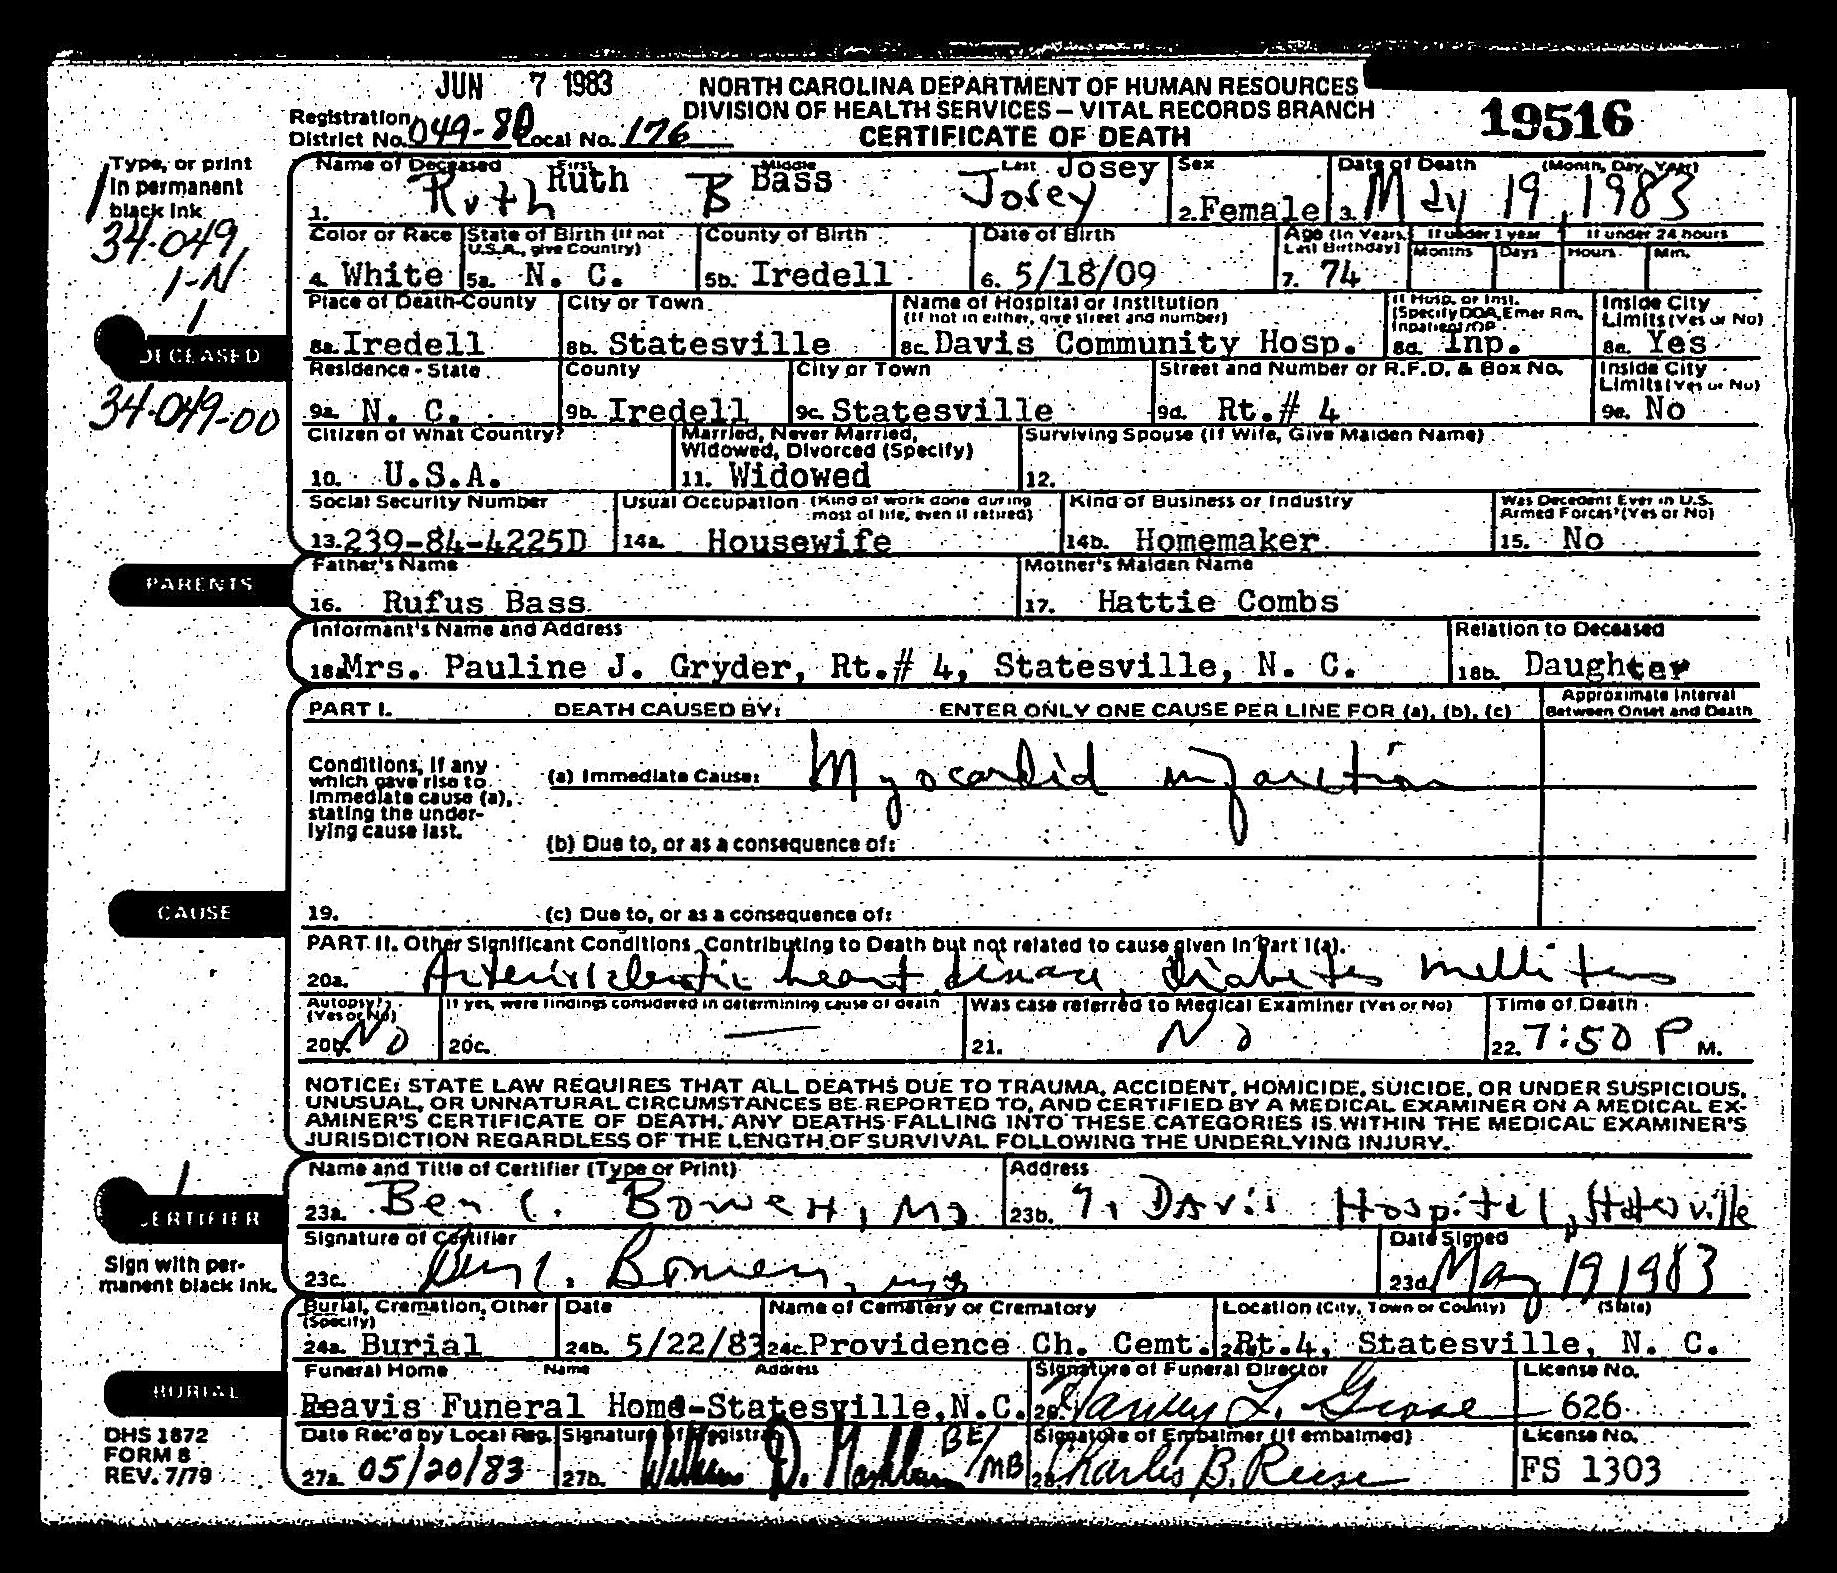 JUN 7 1983
NORTH CAROLINA DEPARTMENT OF HUMAN RESOURCES
DIVISION OF HEALTH SERVICES – VITAL RECORDS BRANCH
CERTIFICATE OF DEATH
19516
Registration
District No. 049-80 Local No. 176
Type, or print
in permanent
black ink
34-049
1-N
1
DECEASED
34-049-00
Name of Deceased First Middle Last
Ruth Bass Josey
1. Ruth B Josey
Sex
2. Female
Date of Death (Month, Day, Year)
3. May 19, 1983
Color or Race
4. White
State of Birth (If not
U.S.A., give Country)
5a. N. C.
County of Birth
5b. Iredell
Date of Birth
6. 5/18/09
Age (In Years
Last Birthday)
7. 74
If under 1 year
Months Days
If under 24 hours
Hours Min.
Place of Death-County
8a. Iredell
City or Town
8b. Statesville
Name of Hospital or Institution
(If not in either, give street and number)
8c. Davis Community Hosp.
If Hosp. or Inst.
(Specify DOA, Emer Rm,
Inpatient/OP
8d. Inp.
Inside City
Limits (Yes or No)
8e. Yes
Residence - State
9a. N. C.
County
9b. Iredell
City or Town
9c. Statesville
Street and Number or R.F.D. & Box No.
9d. Rt.# 4
Inside City
Limits (Yes or No)
9e. No
Citizen of What Country?
10. U.S.A.
Married, Never Married,
Widowed, Divorced (Specify)
11. Widowed
Surviving Spouse (If Wife, Give Maiden Name)
12.
Social Security Number
13. 239-84-4225D
Usual Occupation (Kind of work done during
most of life, even if retired)
14a. Housewife
Kind of Business or Industry
14b. Homemaker
Was Decedent Ever in U.S.
Armed Forces? (Yes or No)
15. No
PARENTS
Father's Name
16. Rufus Bass
Mother's Maiden Name
17. Hattie Combs
Informant's Name and Address
18a Mrs. Pauline J. Gryder, Rt.# 4, Statesville, N. C.
Relation to Deceased
18b. Daughter
PART I. DEATH CAUSED BY: ENTER ONLY ONE CAUSE PER LINE FOR (a), (b), (c)
Approximate Interval
Between Onset and Death
Conditions, if any
which gave rise to
immediate cause (a),
stating the under-
lying cause last.
(a) Immediate Cause: Myocardial infarction
(b) Due to, or as a consequence of:
CAUSE
19. (c) Due to, or as a consequence of:
PART II. Other Significant Conditions Contributing to Death but not related to cause given in Part I(a).
20a. Arteriosclerotic heart disease, diabetes mellitus
Autopsy?
(Yes or No)
20b. No
If yes, were findings considered in determining cause of death
20c. —
Was case referred to Medical Examiner (Yes or No)
21. No
Time of Death
22. 7:50 P M.
NOTICE: STATE LAW REQUIRES THAT ALL DEATHS DUE TO TRAUMA, ACCIDENT, HOMICIDE, SUICIDE, OR UNDER SUSPICIOUS,
UNUSUAL, OR UNNATURAL CIRCUMSTANCES BE REPORTED TO, AND CERTIFIED BY A MEDICAL EXAMINER ON A MEDICAL EX-
AMINER'S CERTIFICATE OF DEATH. ANY DEATHS FALLING INTO THESE CATEGORIES IS WITHIN THE MEDICAL EXAMINER'S
JURISDICTION REGARDLESS OF THE LENGTH OF SURVIVAL FOLLOWING THE UNDERLYING INJURY.
CERTIFIER
Name and Title of Certifier (Type or Print)
23a. Ben C. Bowen, MD
Address
23b. Davis Hospital, Statesville
Sign with per-
manent black ink.
Signature of Certifier
23c. Ben C. Bowen, MD
Date Signed
23d. May 19 1983
Burial, Cremation, Other
(Specify)
24a. Burial
Date
24b. 5/22/83
Name of Cemetery or Crematory
24c. Providence Ch. Cemt.
Location (City, Town or County) (State)
Rt.4, Statesville, N. C.
BURIAL
Funeral Home Name Address
Reavis Funeral Home-Statesville, N.C.
Signature of Funeral Director
26.
License No.
626
DHS 1872
FORM 8
REV. 7/79
Date Rec'd by Local Reg.
27a. 05/20/83
Signature of Registrar
27b. William D. BE/MB
Signature of Embalmer (If embalmed)
Charles B. Reese
License No.
FS 1303